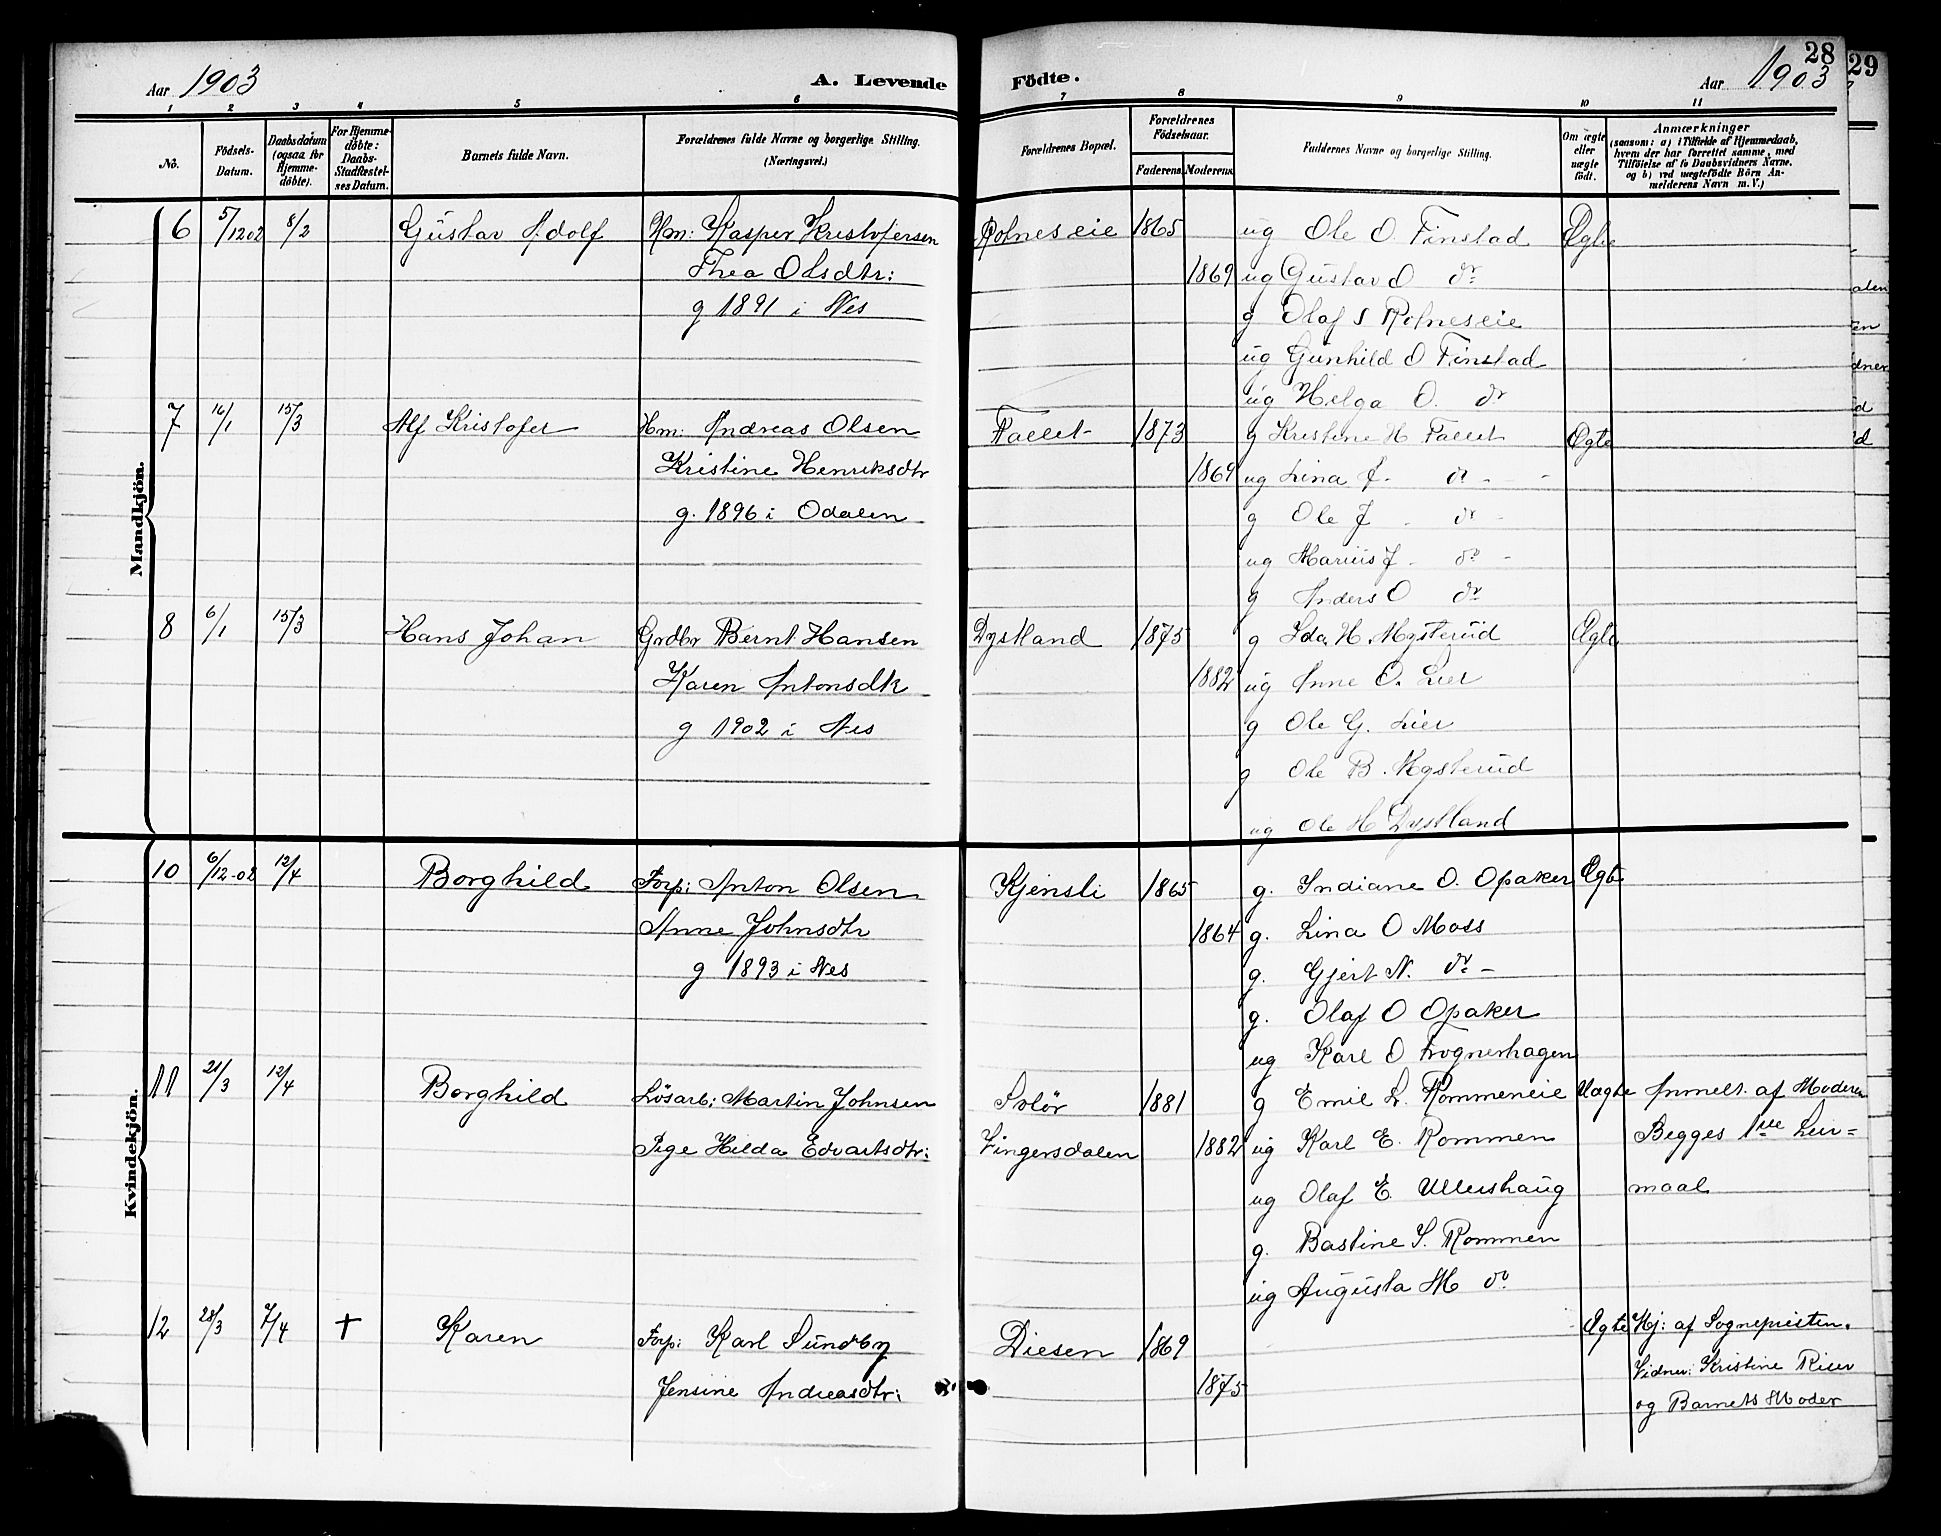 Aar 1903 A. Levende Födte. Aar 1903 28 29
1 2 3 4 5 6 7 8 9 10 11
Nö.
Födsels-Datum.
Daabsdatum (ogsaa for Hjemme-döbte).
For Hjemme-döbte: Daabs-Stadfæstel-ses Datum.
Barnets fulde Navn.
Forældrenes fulde Navne og borgerlige Stilling. (Næringsvei.)
Forældrenes Bopæl.
Forældrenes Födselsaar.
Faderens. Moderens.
Faddernes Navne og borgerlige Stilling.
Om ægte eller uægte födt.
Anmærkninger
(saasom: a) i Tilfælde af Hjemmedaab,
hvem der har forrettet samme, med
Tilföielse af to Daabsvidners Navne.
og b) ved uægtefödte Börn An-
melderens Navn m. V.)
Mandkjön.
6 5/12 02 8/2 Gustav Adolf Hm: Kasper Kristofersen Rotneseie 1865 ug Ole O. Finstad Ægte
Thea Olsdtr: 1869 ug Gustav O do
g 1891 i Nes g Olaf S Rotneseie
ug Gunhild O Finstad
ug Helga O. do
7 16/1 15/3 Alf Kristofer Hm: Andreas Olsen Fallet 1873 g Kristine H Fallet Ægte
Kristine Henriksdtr 1869 ug Lina J. do - -
g. 1896 i Odalen g Ole J - do -
ug Marius J - do -
g Anders O do
8 6/1 15/3 Hans Johan Grdbr Bernt Hansen Dystland 1875 g Ida H. Mysterud Ægte
Karen Antonsdtr 1882 ug Anne O. Lier
g 1902 i Nes g Ole G. Lier
g Ole B. Mysterud
ug Ole H Dystland
Kvindekjön.
10 6/12-02 12/4 Borghild Forp: Anton Olsen Kjensli 1865 g. Indiane O. Opaker Ægte
Anne Johnsdtr 1864 g. Lina O Moss
g 1893 i Nes g. Gjert N. do -
g. Olaf O Opaker
ug Karl O Frognerhagen
11 21/3 12/4 Borghild Lösarb; Martin Johnsen Solör 1881 g Emil L. Rommeneie Uægte Anmelt. af Moderen
Pige Hilda Edvartsdtr: Vingersdalen 1882 ug Karl E. Rommen Begges 1ste Leir=
ug Olaf E. Ullershaug maal
g. Bastine S. Rommen
ug Augusta M do
12 28/3 7/4 + Karen Forp: Karl Sundby Diesen 1869 Ægte Hj: af Sognepresten.
Jensine Andreasdtr: 1875 Vidner: Kristine Riser
og Barnets Moder